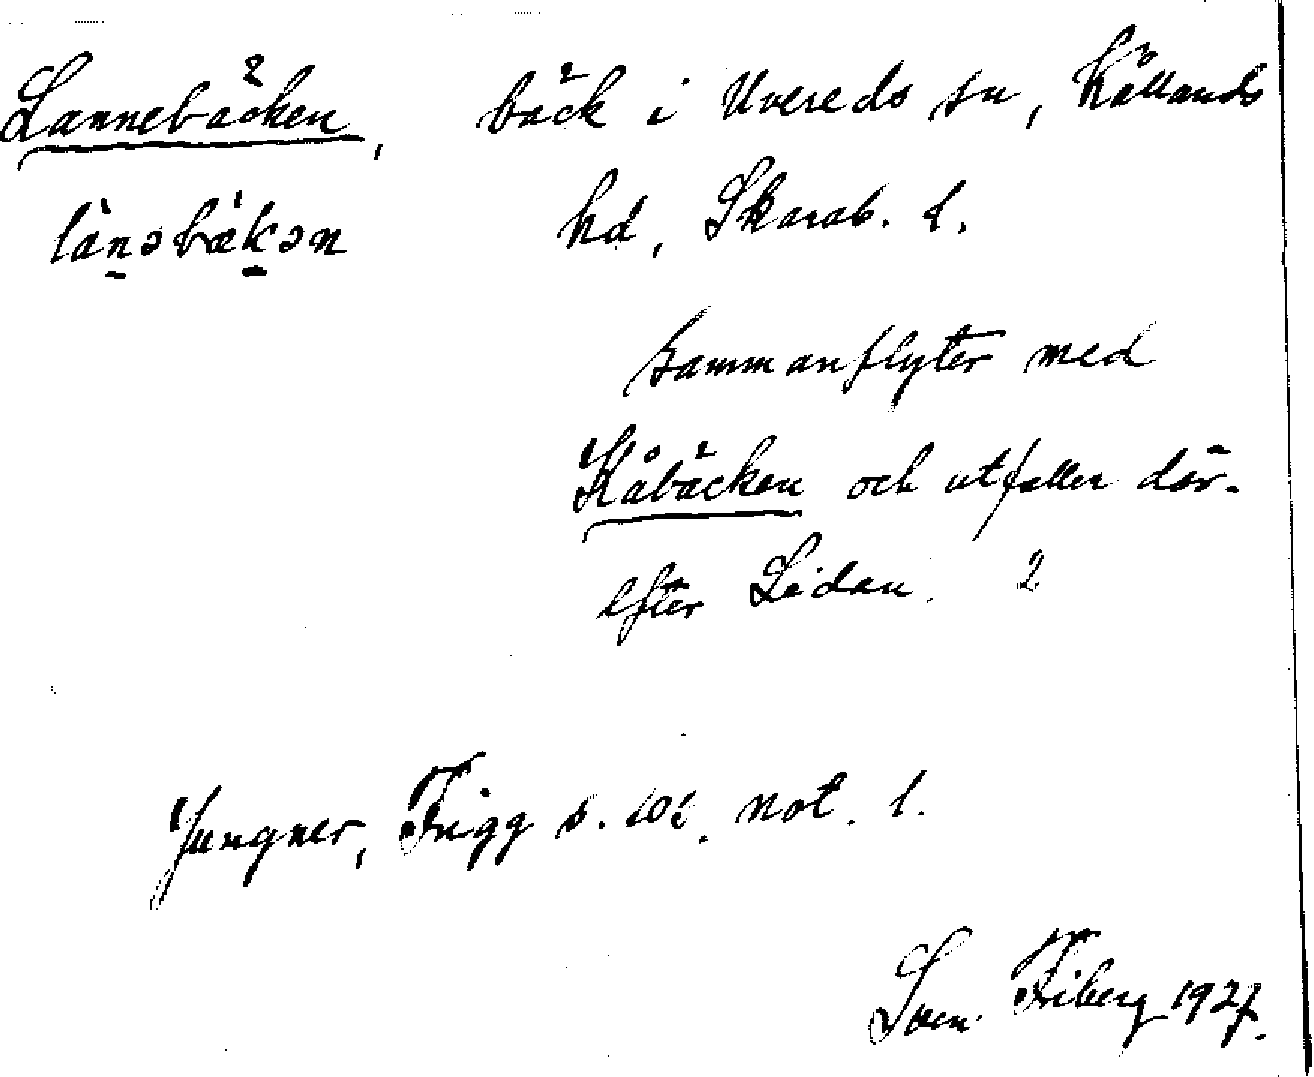 Lannebäcken, bäck i Uvereds sn, Kållands
lànəbǽkən hd, Skarab. l.
sammanflyter med
Kåbäcken och utfaller där-
efter Lidan.
Jungner, Frigg s. 102. not. 1.
Sven Friberg 1927.